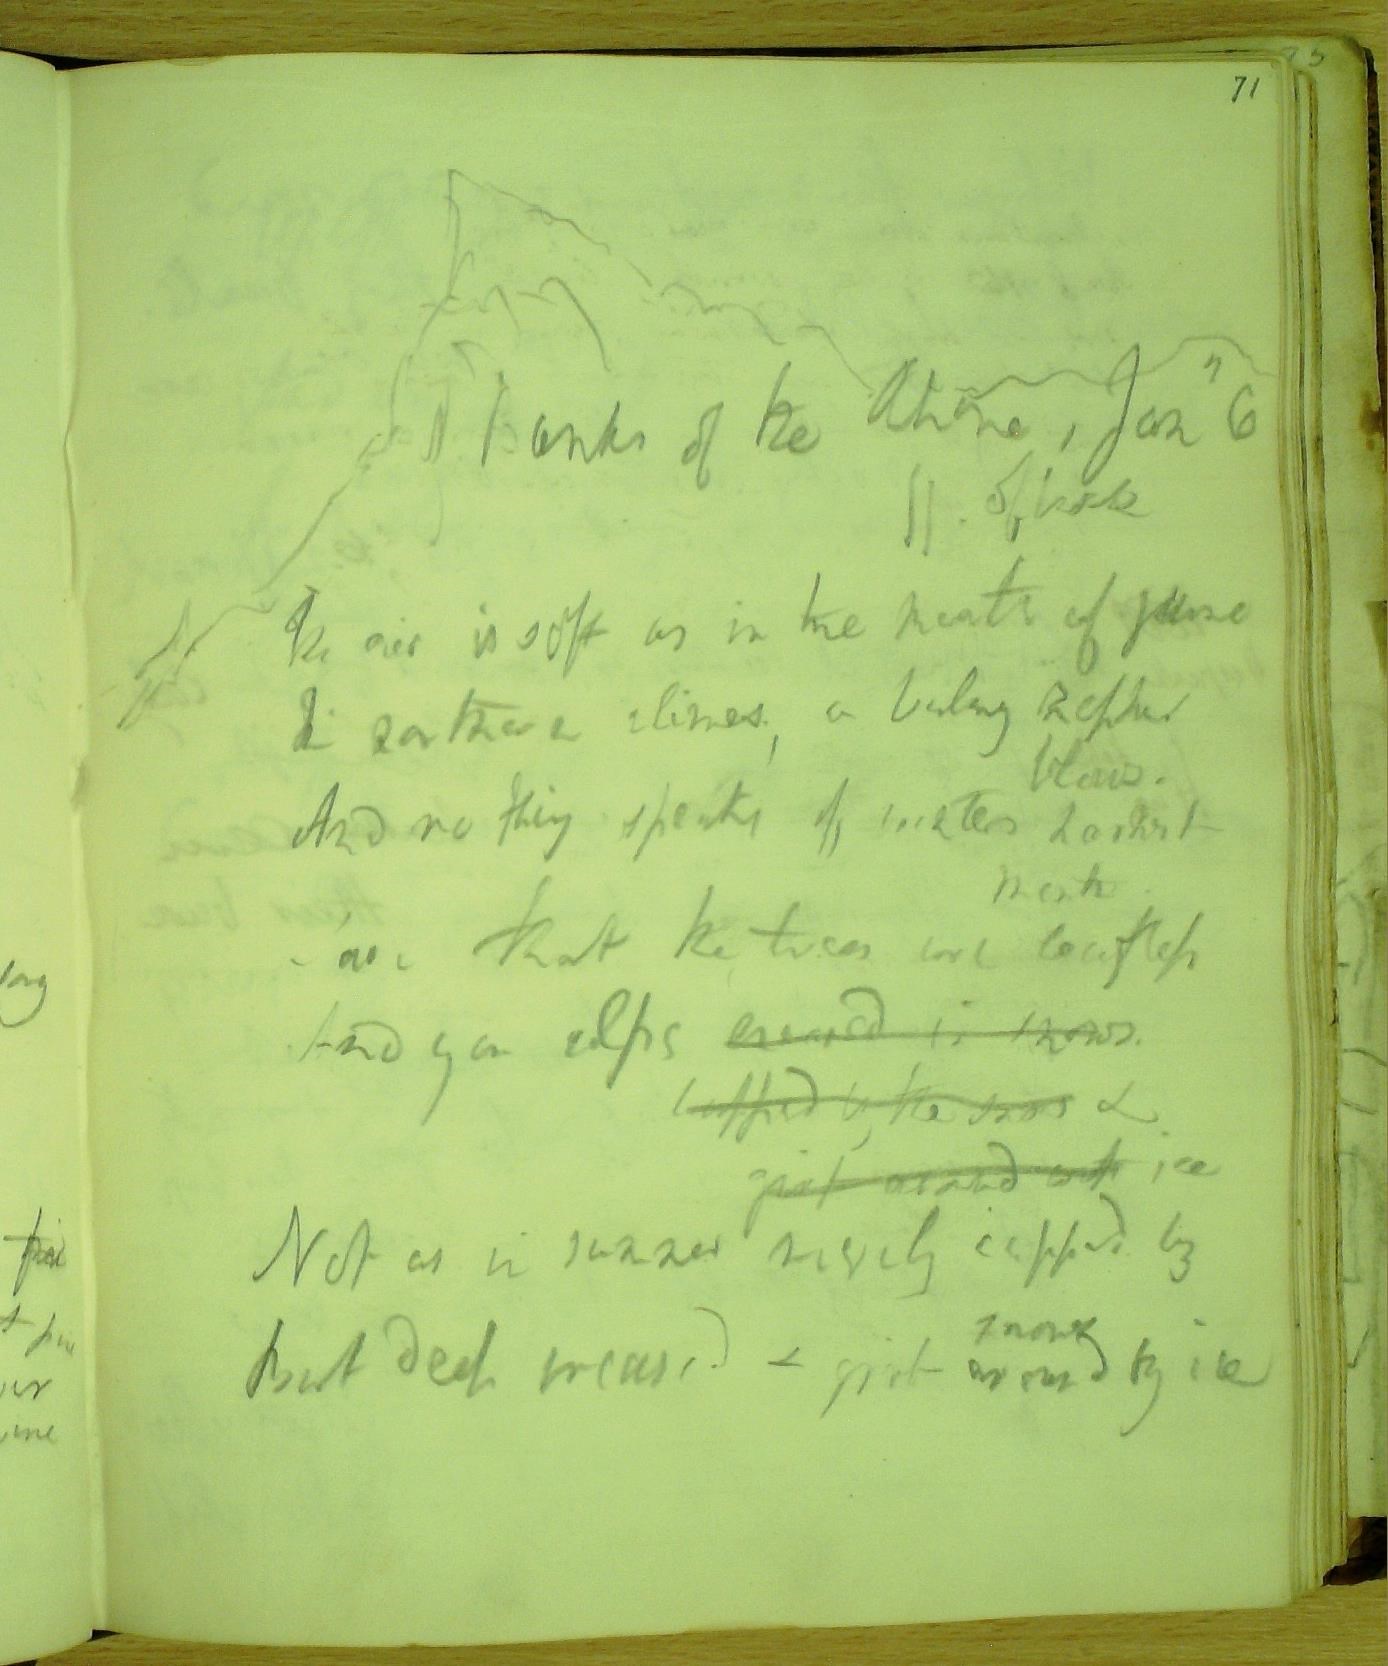 71
Banks of the Rhone, Jan 6
The air is soft as in the month of June
In northern climes, a balmy zephyr
blows.
And nothing speaks of winters harshest
month
save that the trees are leafless
And yon alps encased in snows.
capped by the snows &
girt around with ice
Not as in summer merely capped by
snows
But deep encased & girt around by ice